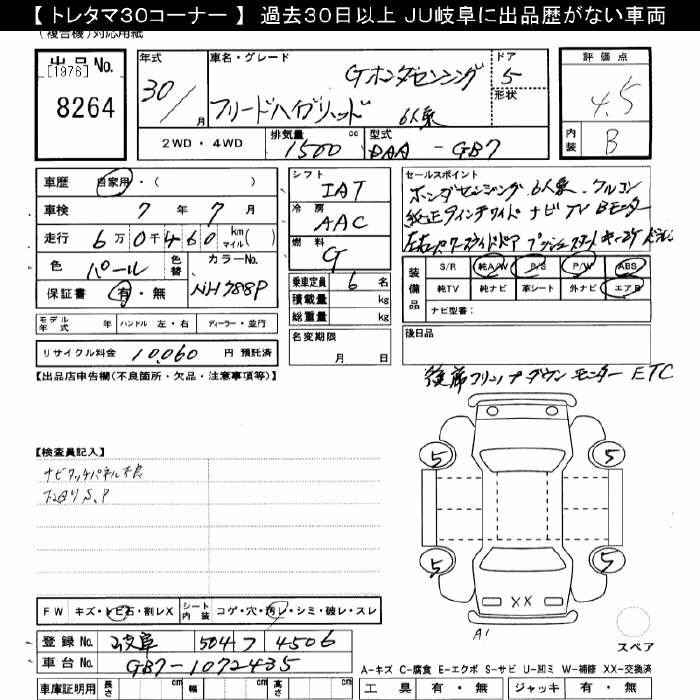 【 トレタマ30コーナー 】 過去30日以上 JU岐阜に出品歴がない車両
(複合機)対応用紙
出品 No.
[1976]
8264
年式
30/
月
車名・グレード
Gホンダセンシング
フリードハイブリッド
6人乗
ドア
5
形状
評価点
4.5
内装
B
2WD・4WD
排気量
1500
cc
型式
DAA - GB7
車歴
自家用・( )
車検
7 年 7 月
走行
6万0千460 km マイル( )
色
パール
色替
カラーNo.
NH788P
保証書
有・無
シフト
IAT
冷房
AAC
燃料
G
乗車定員 6 名
積載量 kg
総重量 kg
名変期限
月 日
セールスポイント
ホンダセンシング 6人乗 クルコン
純正9インチワイド ナビTV Bモニター
左右パワースライドドア プッシュスタート
装備品
S/R 純A/W P/S P/W ABS
純TV 純ナビ 革シート 外ナビ エアB
ナビ型番:
モデル年式 年 ハンドル 左・右 ディーラー・並行
リサイクル料金 10,060 円 預託済
後日品
【出品店申告欄(不良箇所・欠品・注意事項等)】
後席フリップダウンモニター ETC
【検査員記入】
ナビタッチパネル不良
下回りS.P
5 5
5 5
XX
A1
スペア
FW キズ・トビ石・割レX シート内装 コゲ・穴・汚レ・シミ・破レ・スレ
登録 No. 岐阜 504 フ 4506
車台 No. GB7-1072435
車庫証明用 長さ cm 幅 cm 高さ cm
A-キズ C-腐食 E-エクボ S-サビ U-凹ミ W-補修 XX-交換済
工具 有・無 ジャッキ 有・無